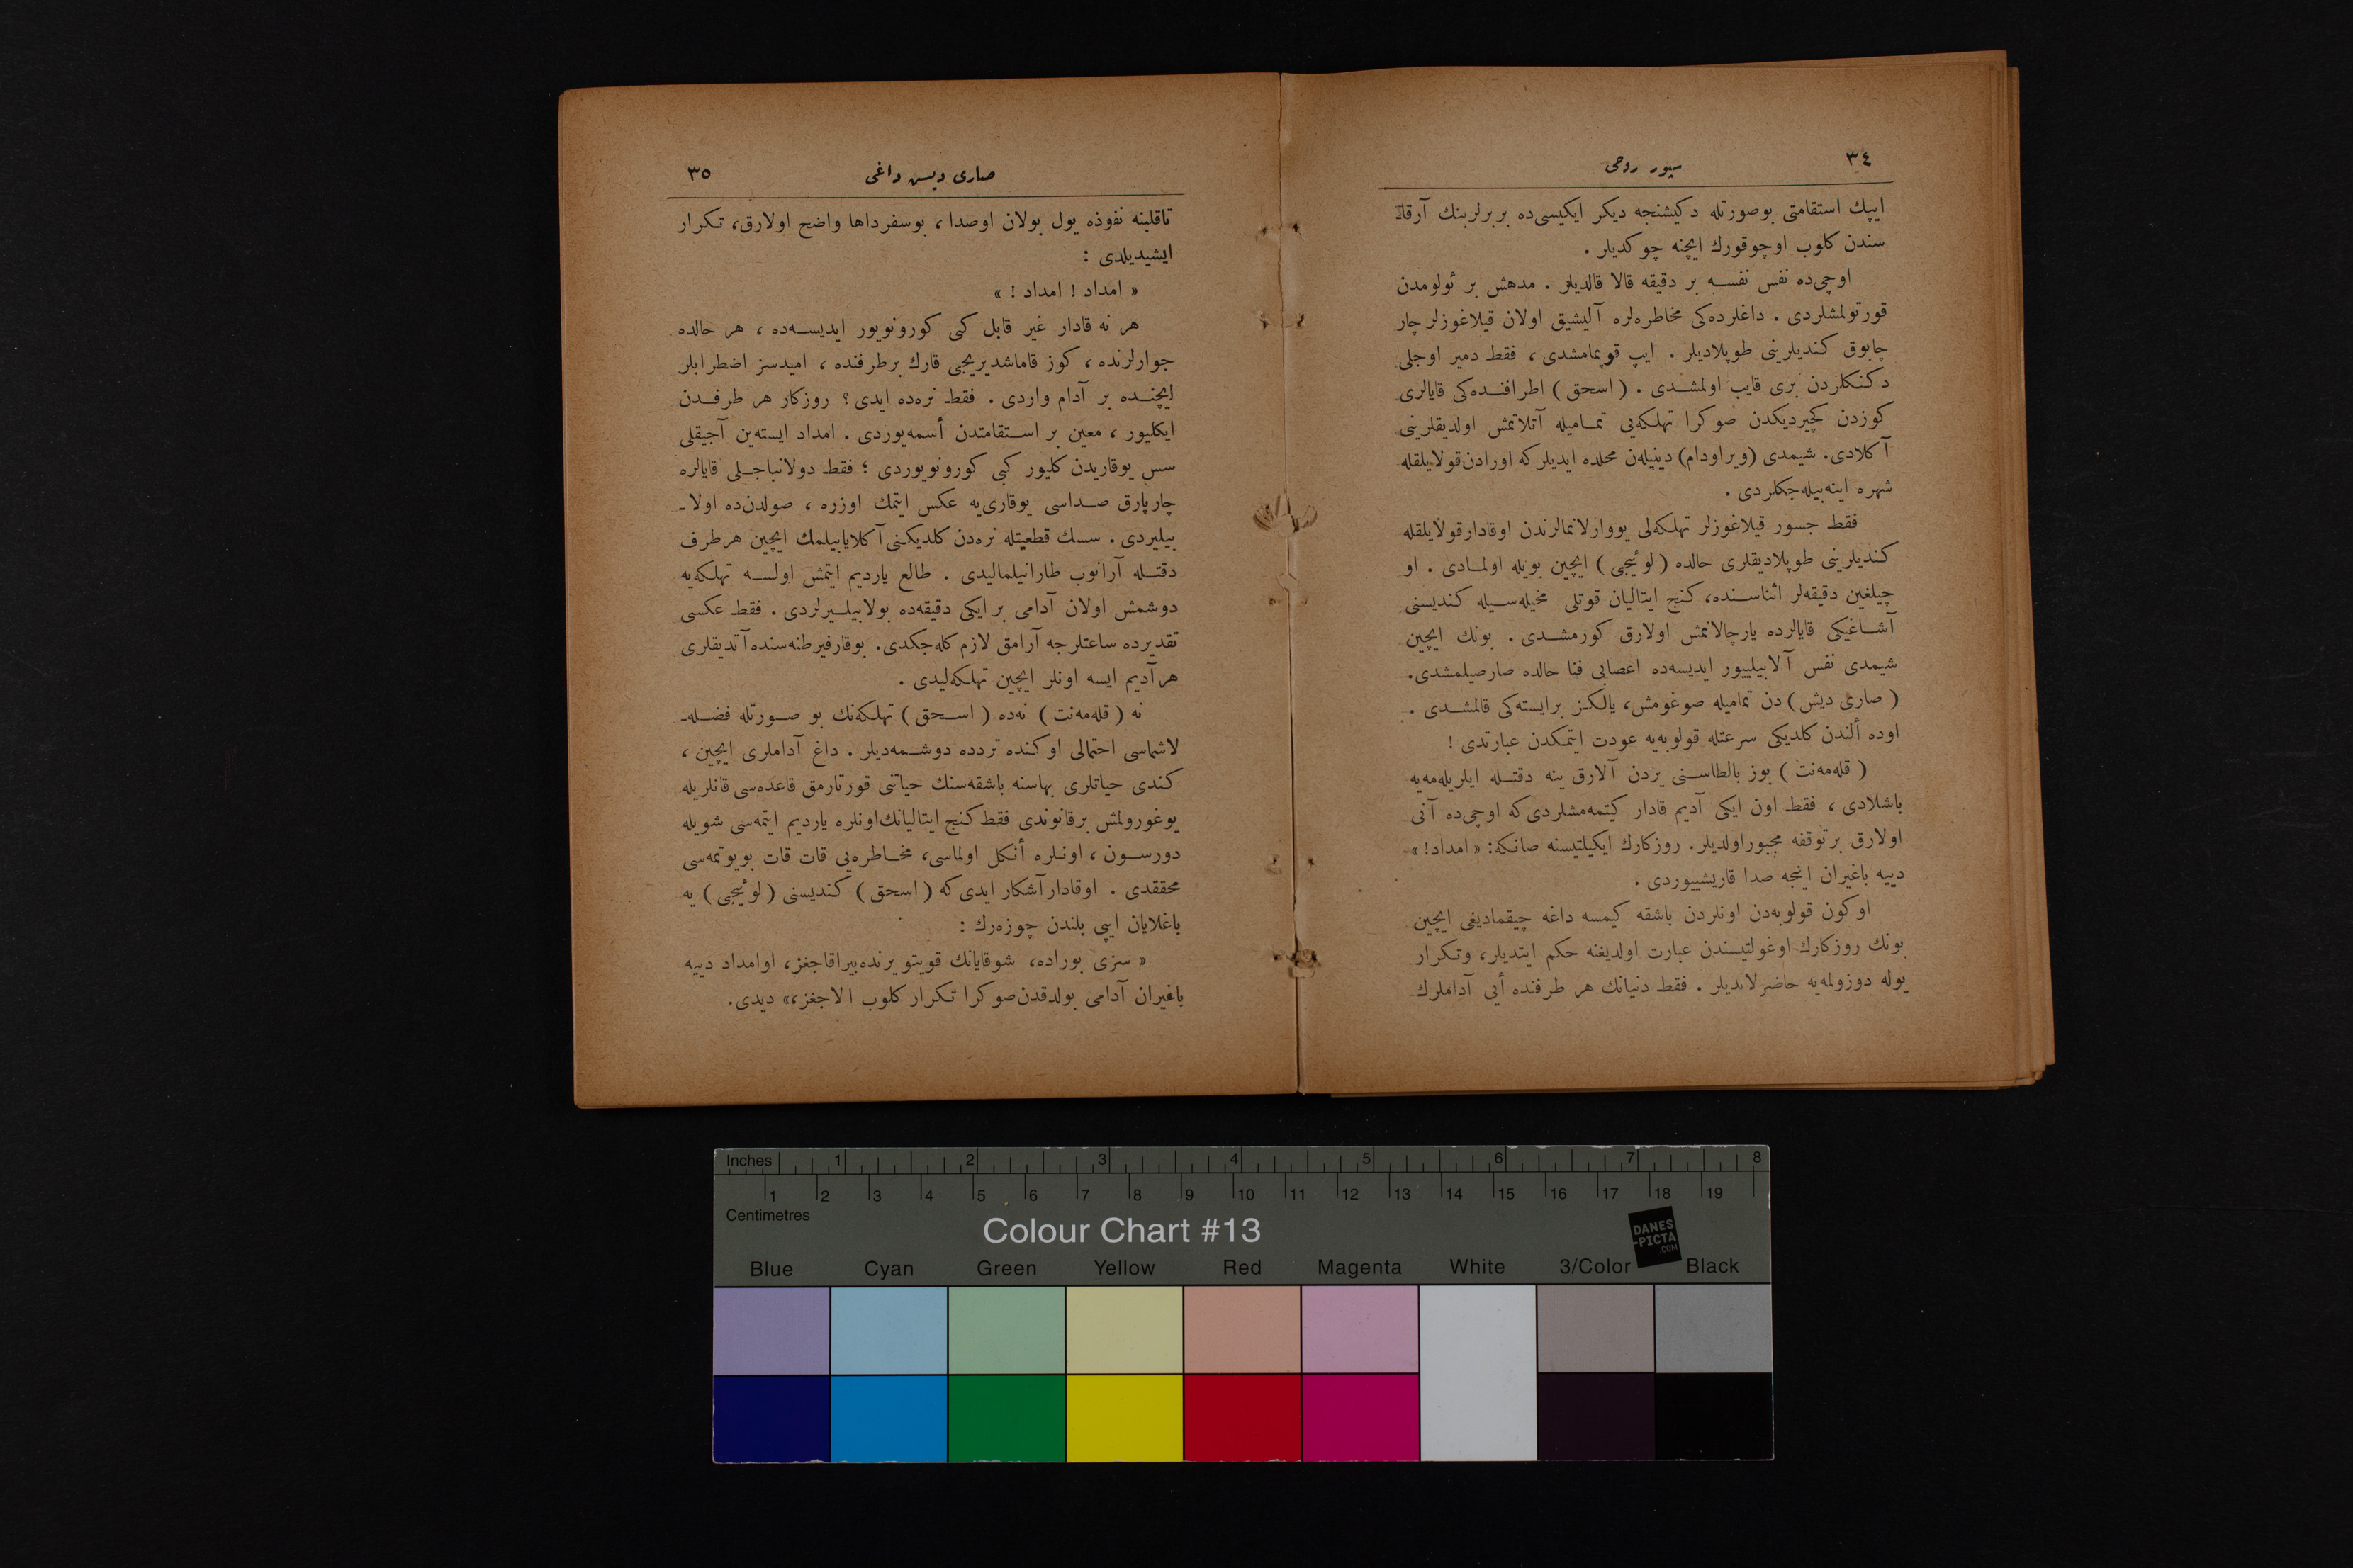 ٣٤
سیور روحی
ایپك استقامتی بوصورتله دكیشنجه دیكر ایكیسی‌ده بربرلرینك آرقا-
سندن كلوب اوچوقورك ایچنه چوكدیلر .
اوچی‌ده نفس نفسـه بر دقیقه قالا قالدیلر . مدهش بر ئولومدن
قورتولمشلردی . داغلرده‌كی مخاطره‌لره آلیشیق اولان قیلاغوزلر چار
چابوق كندیلرینی طوپلادیلر . ایپ قوپمامشدی ، فقط دمیر اوجلی
دكنكلردن بری قایب اولمشـدی . ( اسحق ) اطرافنـده‌كی قایالری
كوزدن كچیردیكدن صوكرا تهلكه‌یی تمـامیله آتلاتمش اولدیقلرینی
آكلادی. شیمدی (ویراودام) دینیله‌ن محلده ایدیلركه اورادن قولایلقله
شهره اینه‌بیله‌جكلردی .
فقط جسور قیلاغوزلر تهلكه‌لی یووارلانمالرندن اوقادار قولایلقله
كندیلرینی طوپلادیقلری حالده ( لوئیجی ) ایچین بویله اولمـادی . او
چیلغین دقیقه‌لر اثناسـنده، كنج ایتالیان قوتلی مخیله‌سـیله كندیسنی
آشـاغیكی قایالرده پارچالانمش اولارق كورمشـدی . بونك ایچین
شیمدی نفس آلابیلییور ایدیسه‌ده اعصابی فنا حالده صارصیلمشدی.
( صاری دیش) دن تمامیله صوغومش، یالكـز برایسته‌كی قالمشـدی .
اوده ألندن كلدیكی سرعتله قولوبه‌یه عودت ایتمكدن عبارتدی !
( قله‌مه‌نت ) بوز بالطاسـنی یردن آلارق ینه دقتـله ایلریله‌مه‌یه
باشلادی ، فقط اون ایكی آدیم قادار كیتمه‌مشلردی‌كه اوچی‌ده آنی
اولارق برتوقفه مجبوراولدیلر. روزكارك ایكیلتیسنه صانكه: « امداد! »
دییه باغیران اینجه صدا قاریشییوردی .
اوكون قولوبه‌دن اونلردن باشقه كیمسه داغه چیقمادیغی ایچین
بونك روزكارك اوغولتیسندن عبارت اولدیغنه حكم ایتدیلر، وتكرار
یوله دوزولمه‌یه حاضرلاندیلر . فقط دنیانك هر طرفنده أیی آداملرك
صاری دیش داغی
٣٥
تاقلبنه نفوذه یول بولان اوصدا ، بوسفرداها واضح اولارق، تكرار
ایشیدیلدی :
« امداد ! امداد ! »
هر نه قادار غیر قابل كبی كورونویور ایدیسـه‌ده ، هر حالده
جوارلرنده ، كوز قاماشدیریجی قارك برطرفنده ، امیدسز اضطرابلر
ایچنـده بر آدام واردی . فقط نره‌ده ایدی ؟ روزكار هر طرفـدن
ایكلیور ، معین بر اسـتقامتدن أسمه‌یوردی . امداد ایسته‌ین آجیقلی
سس یوقاریدن كلیور كبی كورونویوردی ؛ فقط دولانباجـلی قایالره
چارپارق صـداسی یوقاری‌یه عكس ایتمك اوزره ، صولدن‌ده اولا-
بیلیردی . سسك قطعیتله نره‌دن كلدیكنی آكلایابیلمك ایچین هرطرف
دقتـله آرانوب طارانیلمالیدی . طالع یاردیم ایتمش اولسـه تهلكه‌یه
دوشمش اولان آدامی بر ایكی دقیقه‌ده بولابیلـیرلردی . فقط عكسی
تقدیرده ساعتلرجه آرامق لازم كله‌جكدی. بوقارفیرطنه‌سنده آتدیقلری
هرآدیم ایسه اونلر ایچین تهلكه‌لیدی .
نه ( قله‌مه‌نت ) نه‌ده ( اسـحق ) تهلكه‌نك بو صـورتله فضـله-
لاشماسی احتمالی اوكنده تردده دوشـمه‌دیلر . داغ آداملری ایچین ،
كندی حیاتلری بهاسنه باشقه‌سنك حیاتنی قورتارمق قاعده‌سی قانلریله
یوغورولمش برقانوندی فقط كنج ایتالیانك اونلره یاردیم ایتمه‌سی شویله
دورسـون ، اونلره أنكل اولماسی، مخـاطره‌یی قات قات بویوتمه‌سی
محققدی . اوقادار آشكار ایدی‌كه ( اسحق ) كندیسنی ( لوئیجی ) یه
باغلایان ایپی بلندن چوزه‌رك :
« سزی بوراده، شوقایانك قویتو یرنده بیراقاجغز، اوامداد دییه
باغیران آدامی بولدقدن صوكرا تكرار كلوب الاجغز،» دیدی.
Inches 1 2 3 4 5 6 7 8
1 2 3 4 5 6 7 8 9 10 11 12 13 14 15 16 17 18 19
Centimetres
Colour Chart #13
DANES
-PICTA
.COM
Blue Cyan Green Yellow Red Magenta White 3/Color Black